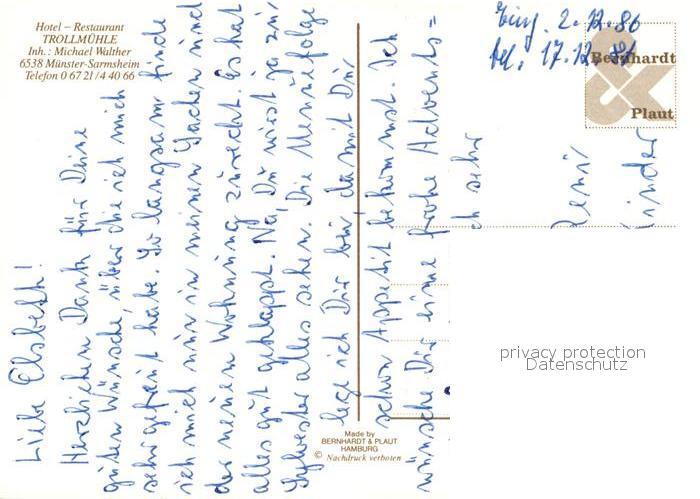 Hotel – Restaurant
TROLLMÜHLE
Inh.: Michael Walther
6538 Münster-Sarmsheim
Telefon 0 67 21 / 4 40 66
Eing. 2.12.86
tel. 17.12.86
Bernhardt
&
Plaut
Liebe Elsbeth!
Herzlichen Dank für Deine
guten Wünsche über die ich mich
sehr gefreut habe. So langsam finde
ich mich nun in meinen Sachen und
der neuen Wohnung zurecht. Es hat
alles gut geklappt. Na, Du wirst ja zu
Sylvester alles sehen. Die Menuefolge
lege ich Dir bei, damit Du
schon Appetit bekommst. Ich
wünsche Dir eine frohe Advents=
ch sehr
Kinder
Made by
BERNHARDT & PLAUT
HAMBURG
© Nachdruck verboten
privacy protection
Datenschutz